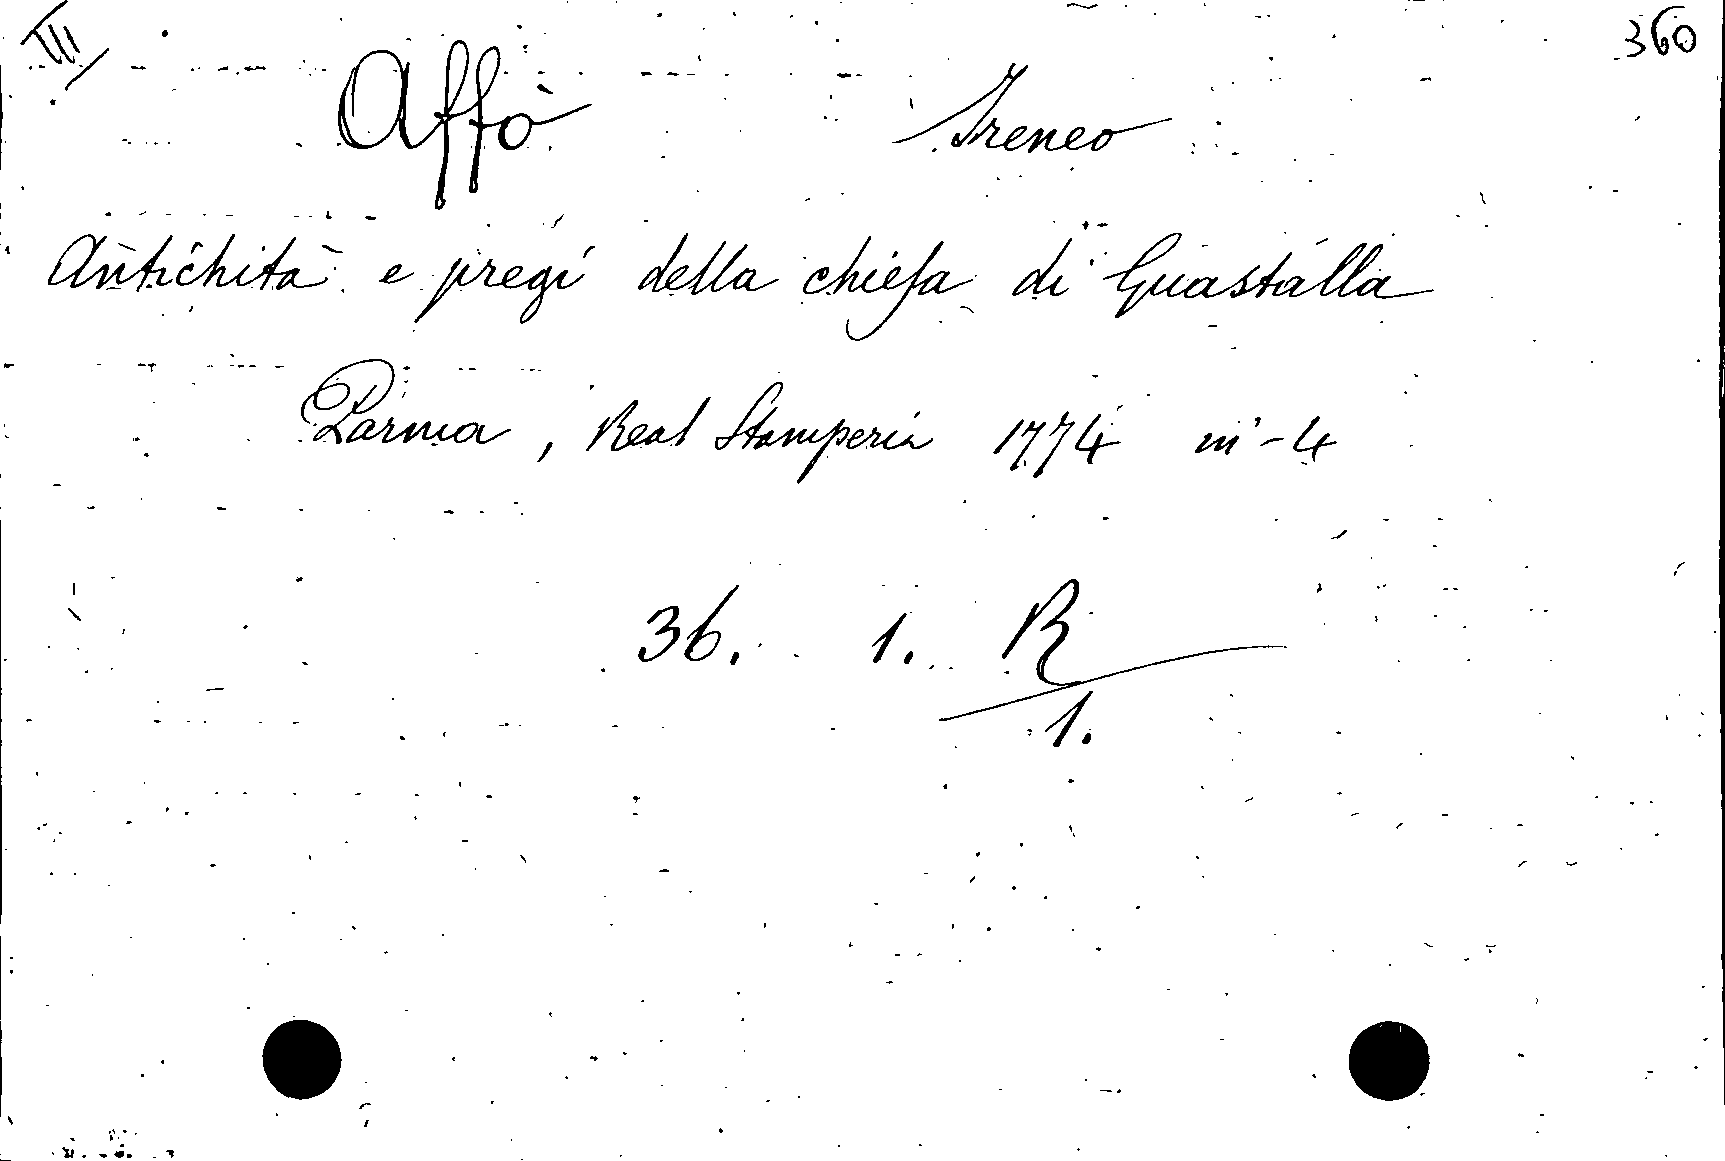 III 360
Affò Ireneo
Antichità e pregi della chiesa di Guastalla
Parma, Real Stamperia 1774 in-4
36. 1. R
1.